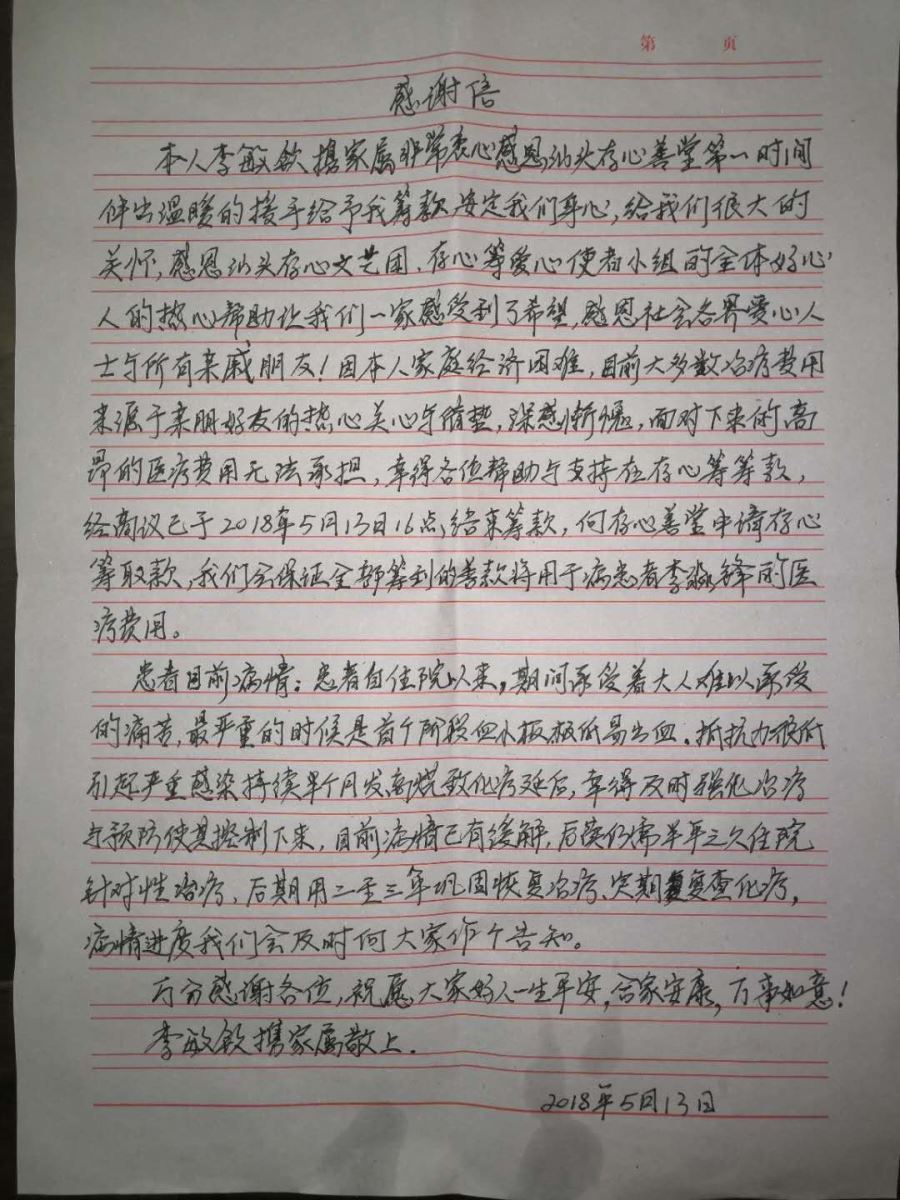 第 页
感谢信
本人李敏钦携家属非常衷心感恩汕头存心善堂第一时间
伴出温暖的援手给予我筹款安定我们身心,给我们很大的
关怀,感恩汕头存心文艺团、存心筹爱心使者小组的全体好心
人的热心帮助让我们一家感受到了希望,感恩社会各界爱心人
士与所有亲戚朋友!因本人家庭经济困难,目前大多数治疗费用
来源于亲朋好友的热心关心与借垫,深感惭愧,面对下来的高
昂的医疗费用无法承担,幸得各位帮助与支持在存心筹筹款,
经商议已于2018年5月13日16点结束筹款,向存心善堂申请存心
筹取款,我们会保证全部筹到的善款将用于病患者李淼锋的医
疗费用。
患者目前病情:患者自住院以来,期间承受着大人难以承受
的痛苦,最严重的时候是首个阶段血小板极低易出血.抵抗力极低
引起严重感染持续半个月发高烧致化疗延后,幸得及时强化治疗
与预防使其控制下来,目前病情已有缓解,后续仍需半年之久住院
针对性治疗,后期用二至三年巩固恢复治疗、定期复查化疗,
病情进度我们会及时向大家作个告知。
万分感谢各位,祝愿大家好人一生平安,合家安康,万事如意!
李敏钦携家属敬上.
2018年5月13日